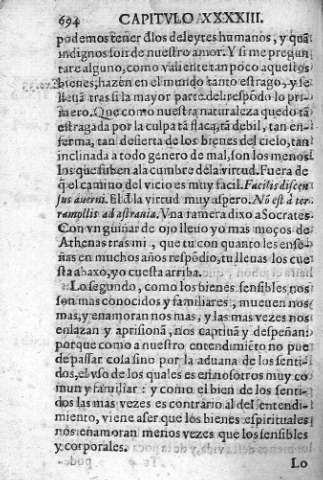 694 CAPITVLO XXXXIII.
podemos tener dlos deleytes humanos, y quã
indignos son de nuestro amor. Y si me pregun
tare alguno, como valiente tan poco aquestos
bienes, hazẽn en el mundo tanto estrago, y se
lleuã tras si la mayor parte del: respõdo lo pri-
mero. Que como nuestra naturaleza quedo tã
estragada por la culpa tã flaca, tã debil, tan en-
ferma, tan desierta de los bienes del cielo, tan
inclinada a todo genero de mal, son los menos
los que suben a la cumbre dela virtud. Fuera de
q̃ el camino del vicio es muy facil. Facilis discen
sus auerni. El d̃ la virtud muy aspero. Nõ est à ter
ra mollis ad astra via. Vna ramera dixo a Socrates
Con vn guiñar de ojo lleuo yo mas moços de
Athenas tras mi, que tu con quanto les ense-
ñas en muchos años respõdio, tu lleuas los cue
sta abaxo, yo cuesta arriba.
Lo segundo, como los bienes sensibles nos
son mas conocidos y familiares, mueuen nos
mas, y enamoran nos mas, y las mas vezes nos
enlazan y aprisionã, nos captiuã y despeñan:
porque como a nuestro entendimiẽto no pue
de passar cosa sino por la aduana de los senti-
dos, el vso de los quales es en nosotros muy co
mun y familiar: y como el bien de los senti-
dos las mas vezes es contrario al del entendi-
miento, viene a ser que los bienes espirituales
nos enamoran menos vezes que los sensibles
y corporales.
Lo